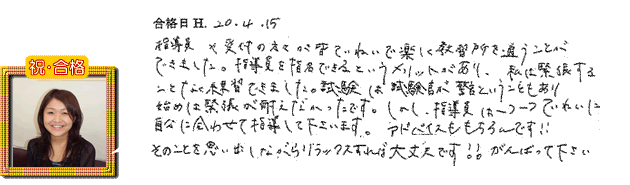 合格日 H. 20.4.15
祝・合格
指導員や受付の方々がていねいで楽しく教習所を通うことが
できました。指導員を指名できるというメリットがあり、私は緊張する
ことなく教習できました。試験は試験官が警官ということもあり
始めは緊張が耐えなかったです。しかし、指導員は一つ一つていねいに
自分に合わせて指導して下さいます。アドバイスももちろんです!!
そのことを思い出しながらリラックスすれば大丈夫です!!がんばって下さい